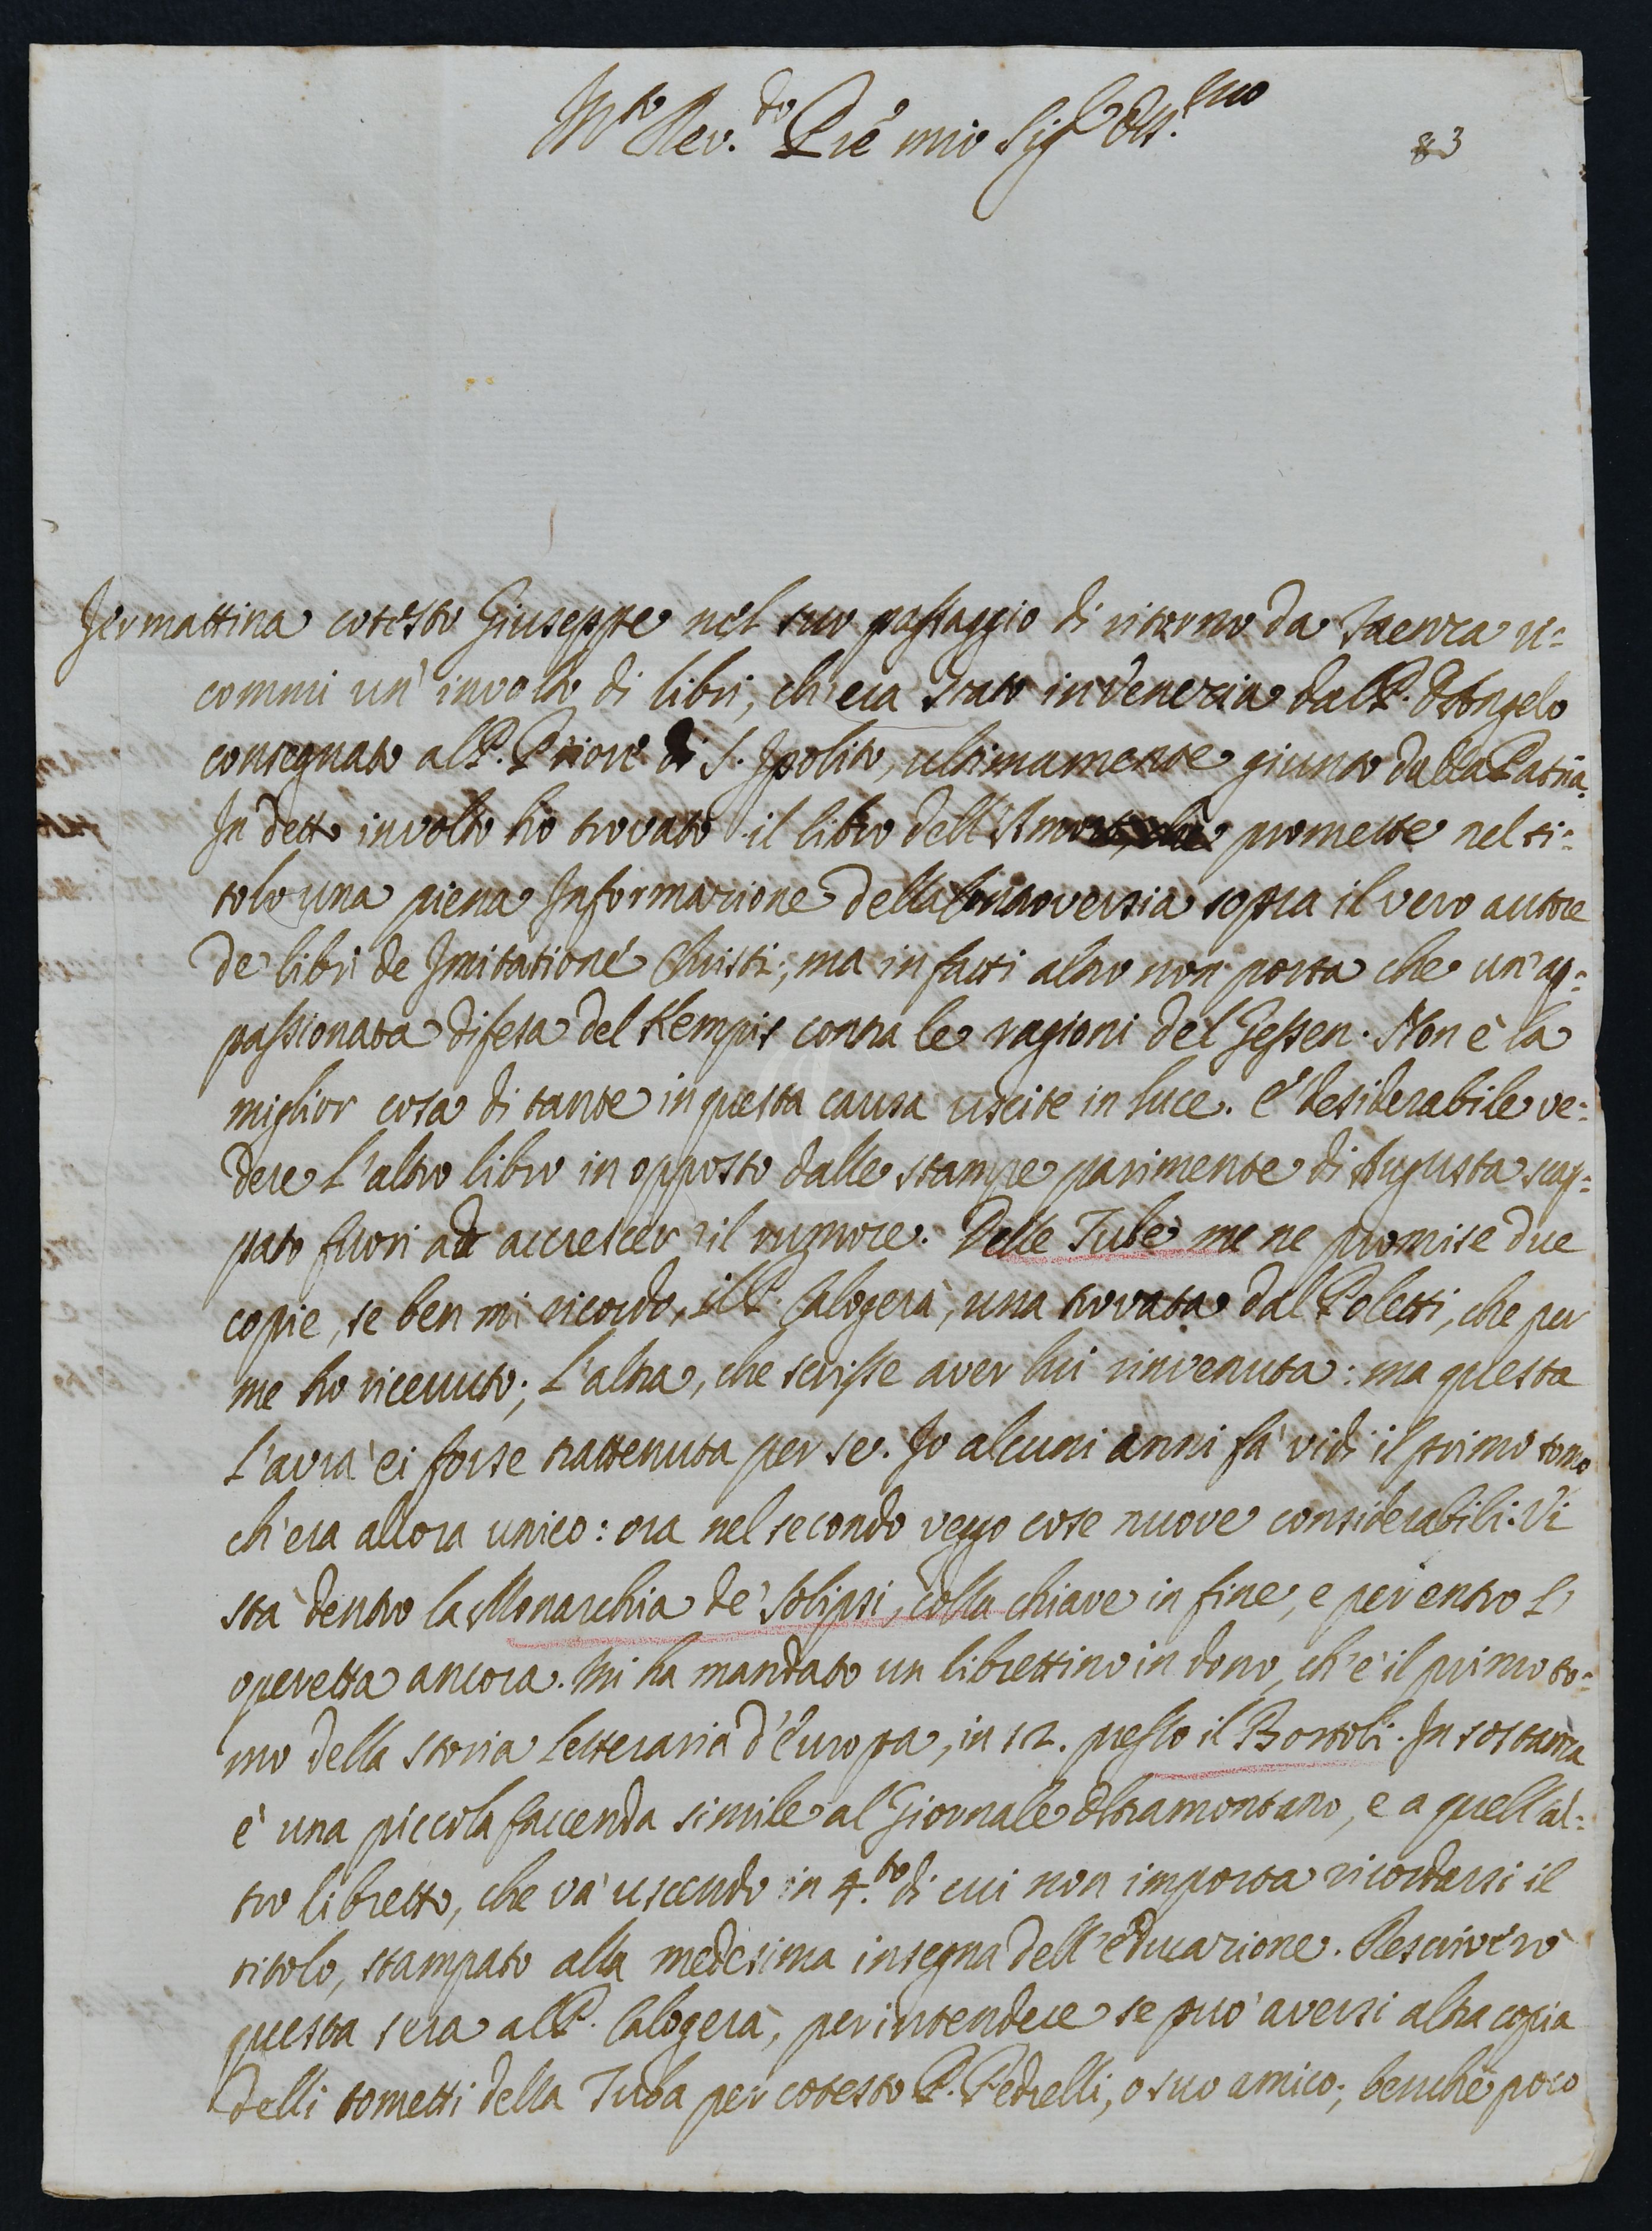 M.to Rev.do Prē mio Sig.r Oss.mo
83
Jermattina cotesto Giuseppe nel suo passaggio di ritorno da Faenza re=
commi un' involto di libri, ch'era stato in Venezia dal P. D'Angelo
consegnato al P. Priore di S. Ipolito, ultimamente giunto dalla Patria.
In detto involto ho trovato il libro dell'Amort, che promette nel ti=
tolo una piena Informazione della Controversia sopra il vero autore
de' libri de Imitatione Christi; ma in fatti altro non porta che un'ap=
passionata difesa del Kempis contra le ragioni del Gessen. Non è la
miglior cosa di tante in questa causa uscite in luce. E' desiderabile ve=
dere l'altro libro in opposto dalle stampe parimente di Augusta scap=
pato fuori ad accrescer il rumore. Delle Tube me ne promise due
copie, se ben mi ricordo, il P. Calogerà, una trovata dal Poletti, che per
me ho ricevuto; l'altra, che scrisse aver lui rinvenuta: ma questa
l'avrà ei forse trattenuta per se. Io alcuni anni fà vidi il primo tomo
ch'era allora unico: ora nel secondo veggo cose nuove considerabili. Vi
stà dentro la Monarchia de' Solipsi, colla chiave in fine, e per entro l'
operetta ancora. Mi ha mandato un librettino in dono, ch'è il primo to=
mo della storia letteraria d'Europa, in 12. presso il Bortoli. In sostanza
è una piccola faccenda simile al Giornale Oltramontano, e a quell'al=
tro libretto, che và uscendo in 4.to di cui non importa ricordarsi il
titolo, stampato alla medesima insegna dell'Educazione. Rescriverò
questa sera al P. Calogerà, per intendere se può aversi altra copia
delli tometti della Tuba per cotesto P. Pedrelli, o suo amico; benchè poco